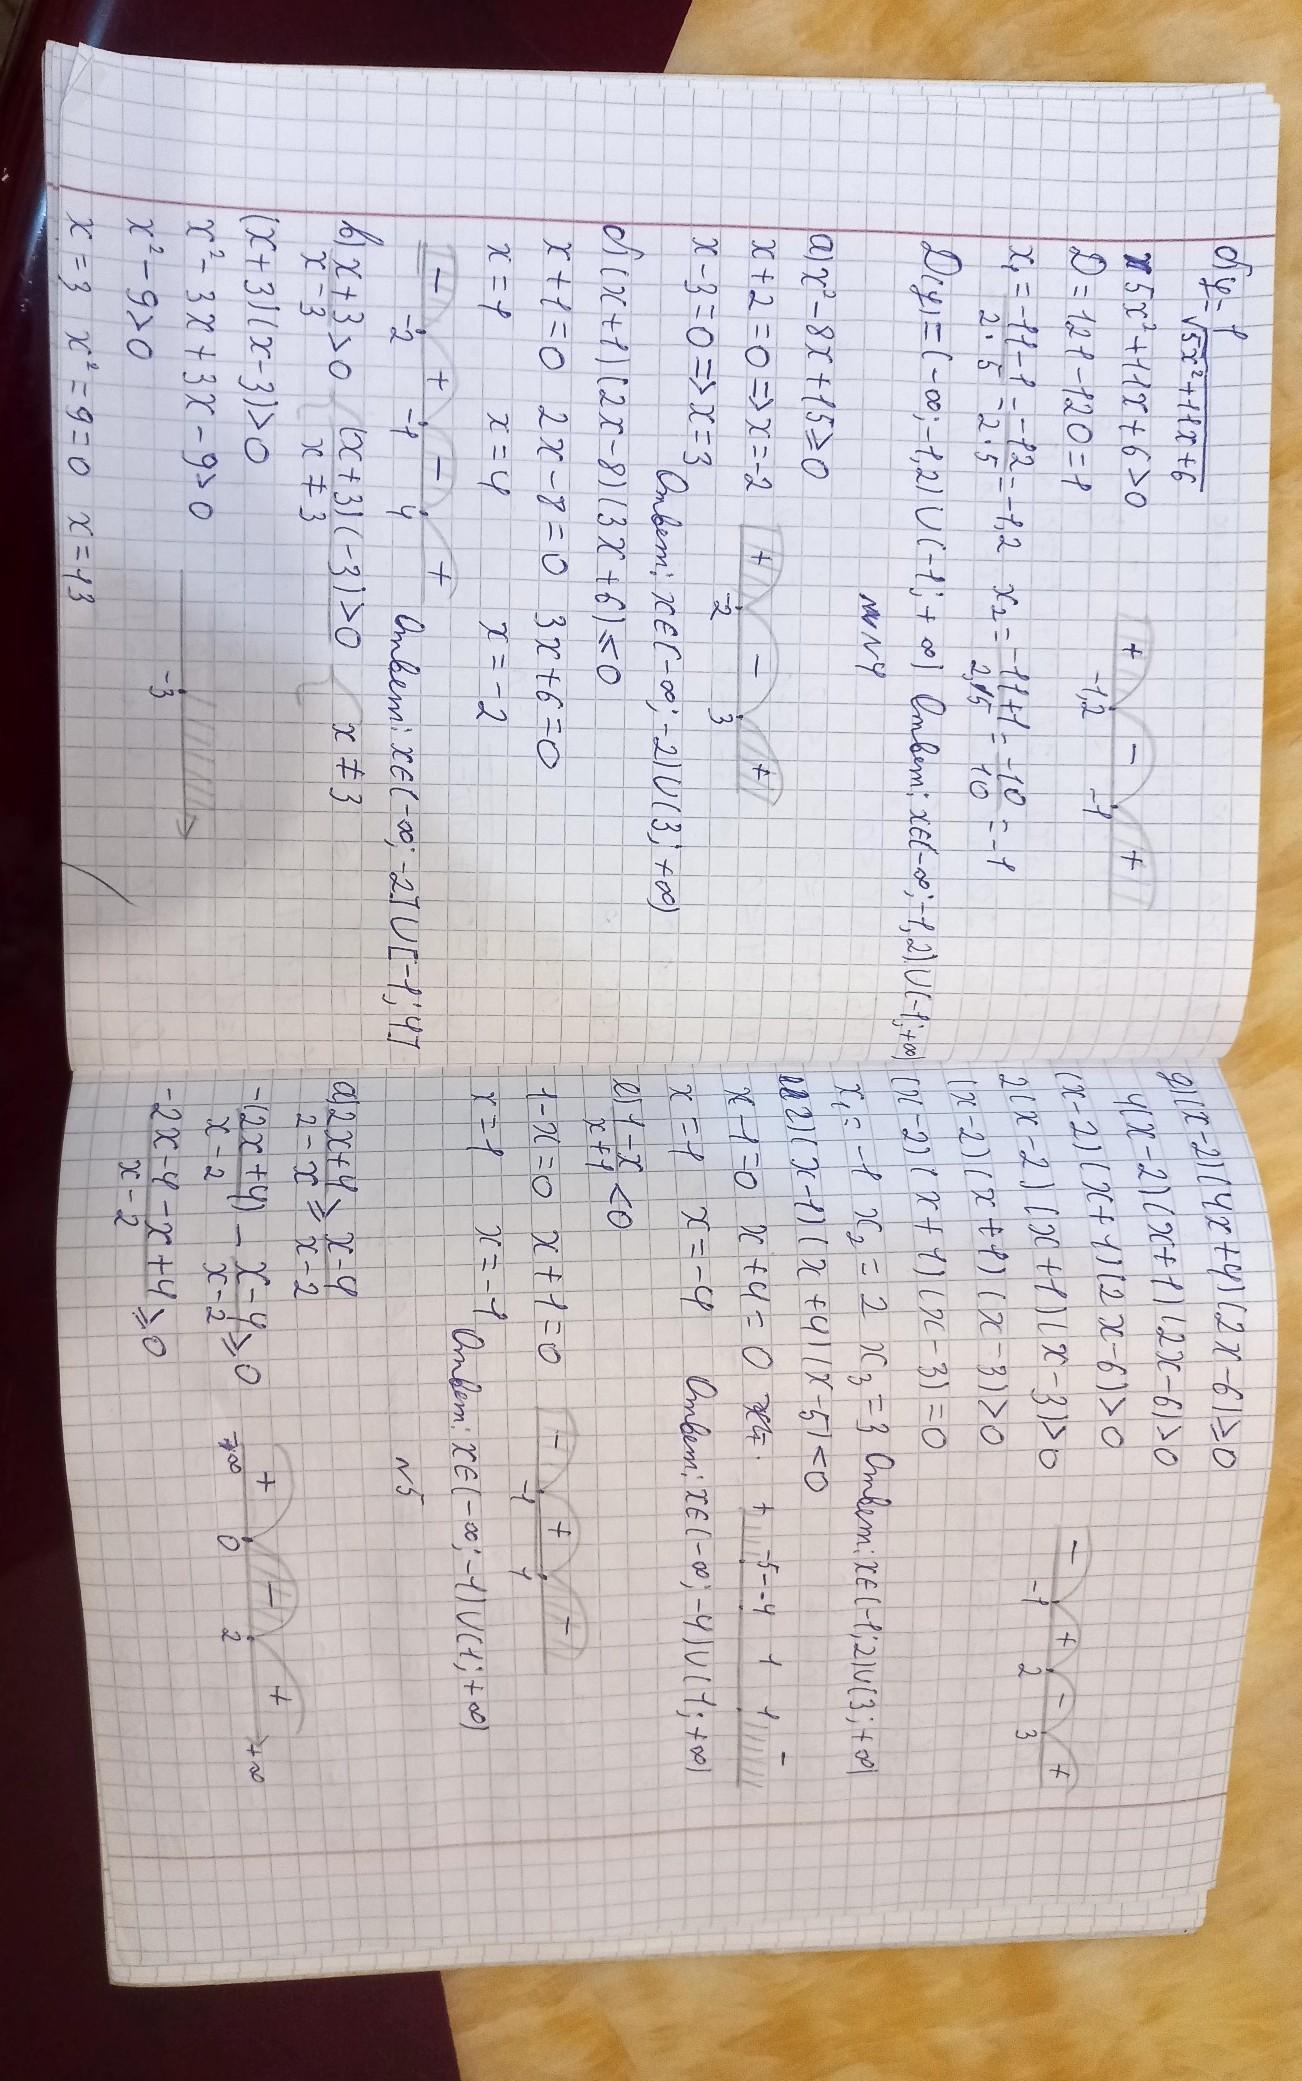 б) y = 1/√5x²+11x+6
5x²+11x+6>0
D=121-120=1
x₁ = -11-1/2·5 = -12/2·5 = -1,2 x₂ = -11+1/2·5 = -10/10 = -1
+ -1,2 - -1 +
D(y) = (-∞; -1,2) ∪ (-1; +∞) Ответ: x∈(-∞; -1,2) ∪ (-1; +∞)
N4
а) x²-8x+15≥0
x+2=0 => x=-2
x-3=0 => x=3
+ -2 - 3 +
Ответ: x∈(-∞; -2) ∪ (3; +∞)
б) (x+1)(2x-8)(3x+6)≤0
x+1=0 2x-8=0 3x+6=0
x=1 x=4 x=-2
- -2 + -1 - 4 +
Ответ: x∈(-∞; -2] ∪ [-1; 4]
в) x+3/x-3 >0 (x+3)(-3)>0 x≠3
x≠3
(x+3)(x-3)>0
x²-3x+3x-9>0
x²-9>0
-3
x=3 x²=9=0 x=±3
д) (x-2)(4x+4)(2x-6)≥0
4(x-2)(x+1)(2x-6)>0
(x-2)(x+1)(2x-6)>0
2(x-2)(x+1)(x-3)>0
(x-2)(x+1)(x-3)>0
(x-2)(x+1)(x-3)=0
- -1 + 2 - 3 +
x₁=-1 x₂=2 x₃=3 Ответ: x∈(-1; 2) ∪ (3; +∞)
2)(x-1)(x+4)(x-5)<0
x-1=0 x+4=0
+ -5 -4 1 1 -
x=1 x=-4 Ответ: x∈(-∞; -4) ∪ (1; +∞)
е) 1-x/x+1 <0
1-x=0 x+1=0
- -1 + 1 -
x=1 x=-1
Ответ: x∈(-∞; -1) ∪ (1; +∞)
N5
а) 2x+4/2-x ≥ x-4/x-2
-(2x+4)/x-2 - x-4/x-2 ≥0
+ 0 - 2 + +∞
-2x-4-x+4/x-2 ≥0